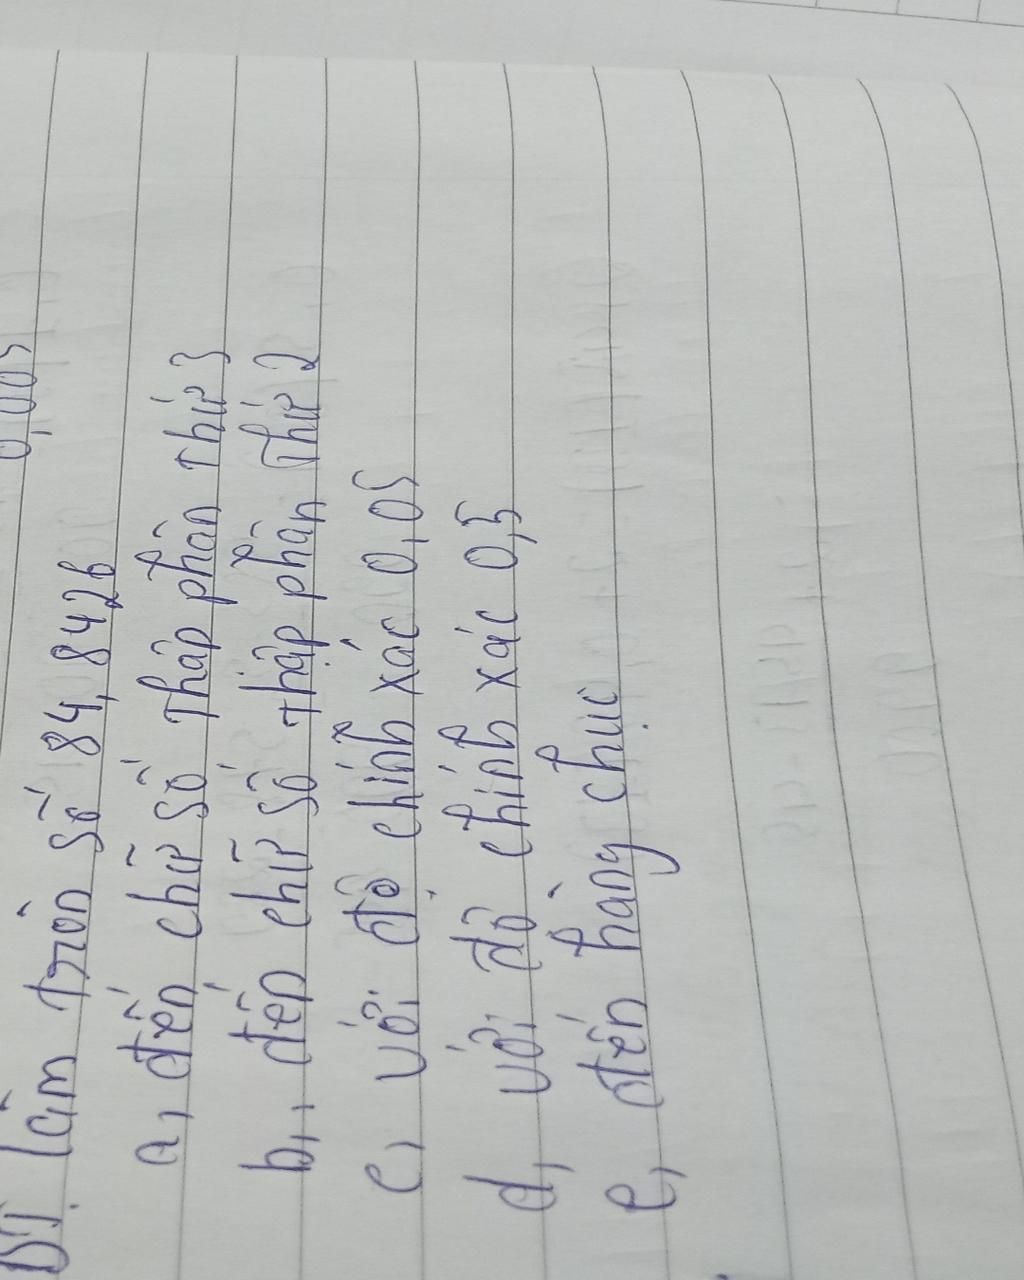 0,005
BT. Làm tròn số 84,8426
a, đến chữ số thập phân thứ 3
b, đến chữ số thập phân thứ 2
c, với độ chính xác 0,05
d, với độ chính xác 0,5
e, đến hàng chục